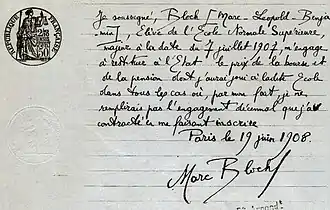 Je soussigné, Bloch [Marc-Léopold-Benja
min], Élève de l'École Normale Supérieure,
majeur à la date du 7 juillet 1907, m'engage
à restituer à l'État le prix de la bourse et
de la pension dont j'aurai joui à ladite École
dans tous les cas où, par une faute, je ne
remplirais pas l'engagement décennal que j'ai
contracté en me faisant inscrire
Paris le 19 juin 1908.
Marc Bloch